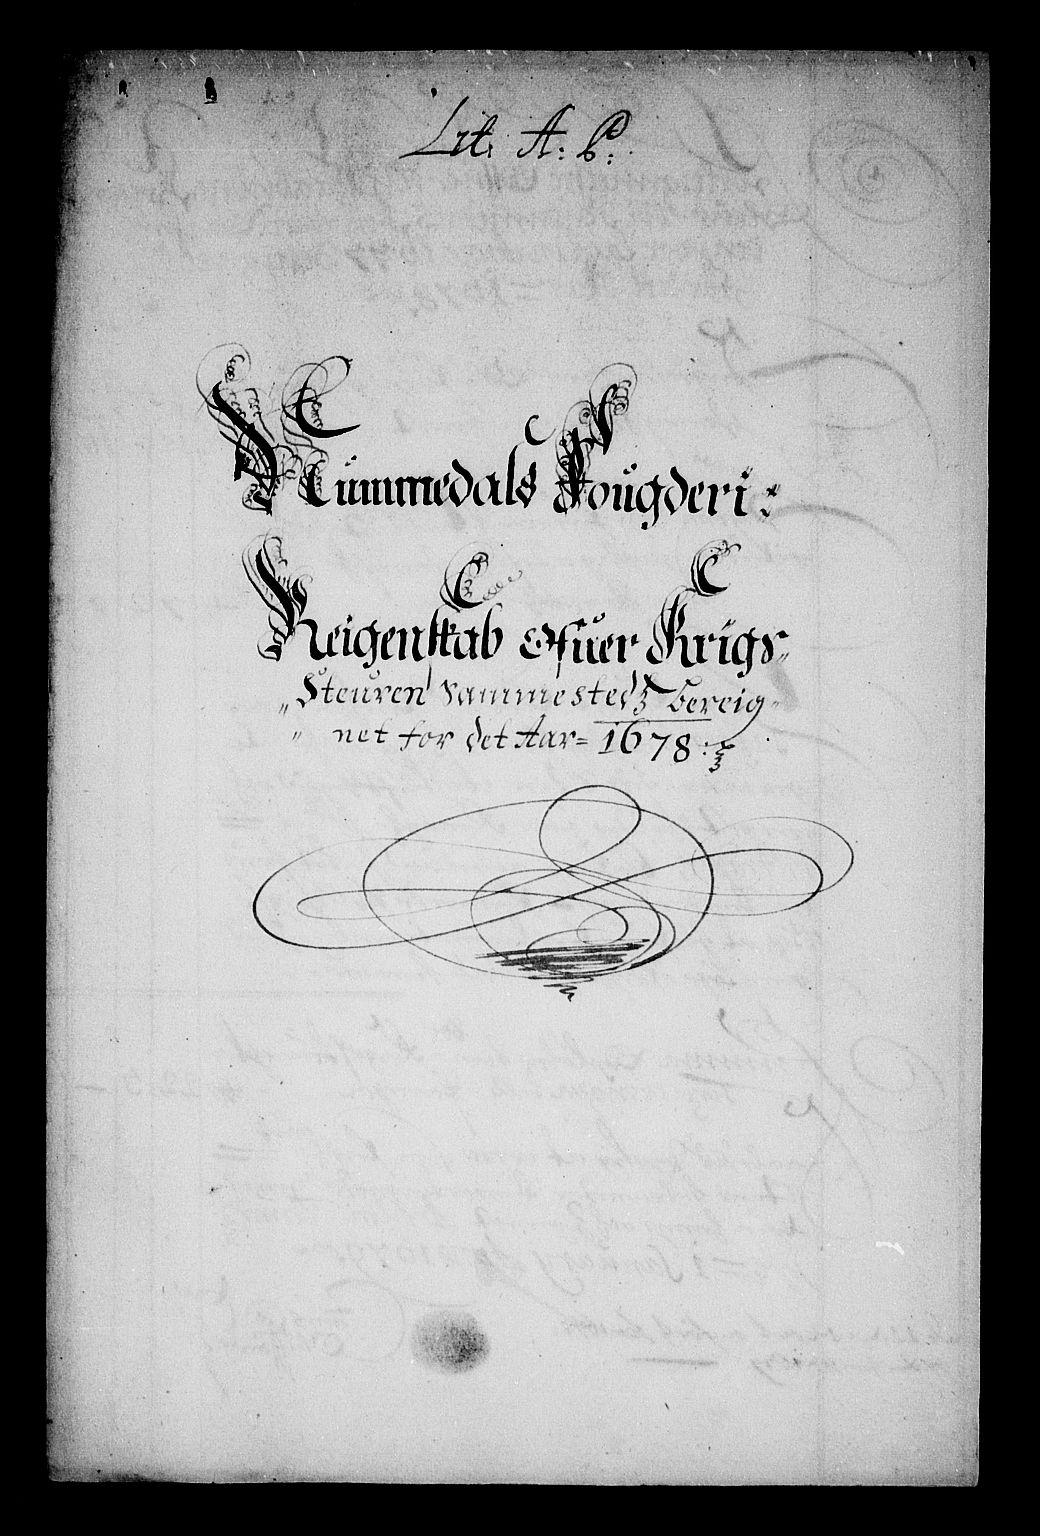 Lit. A: b:
Nummedals Fougderi:
Reigenskab Ofuer Krigs„
„Steuren Sammesteds bereig„
„ net for det Aar= 1678: